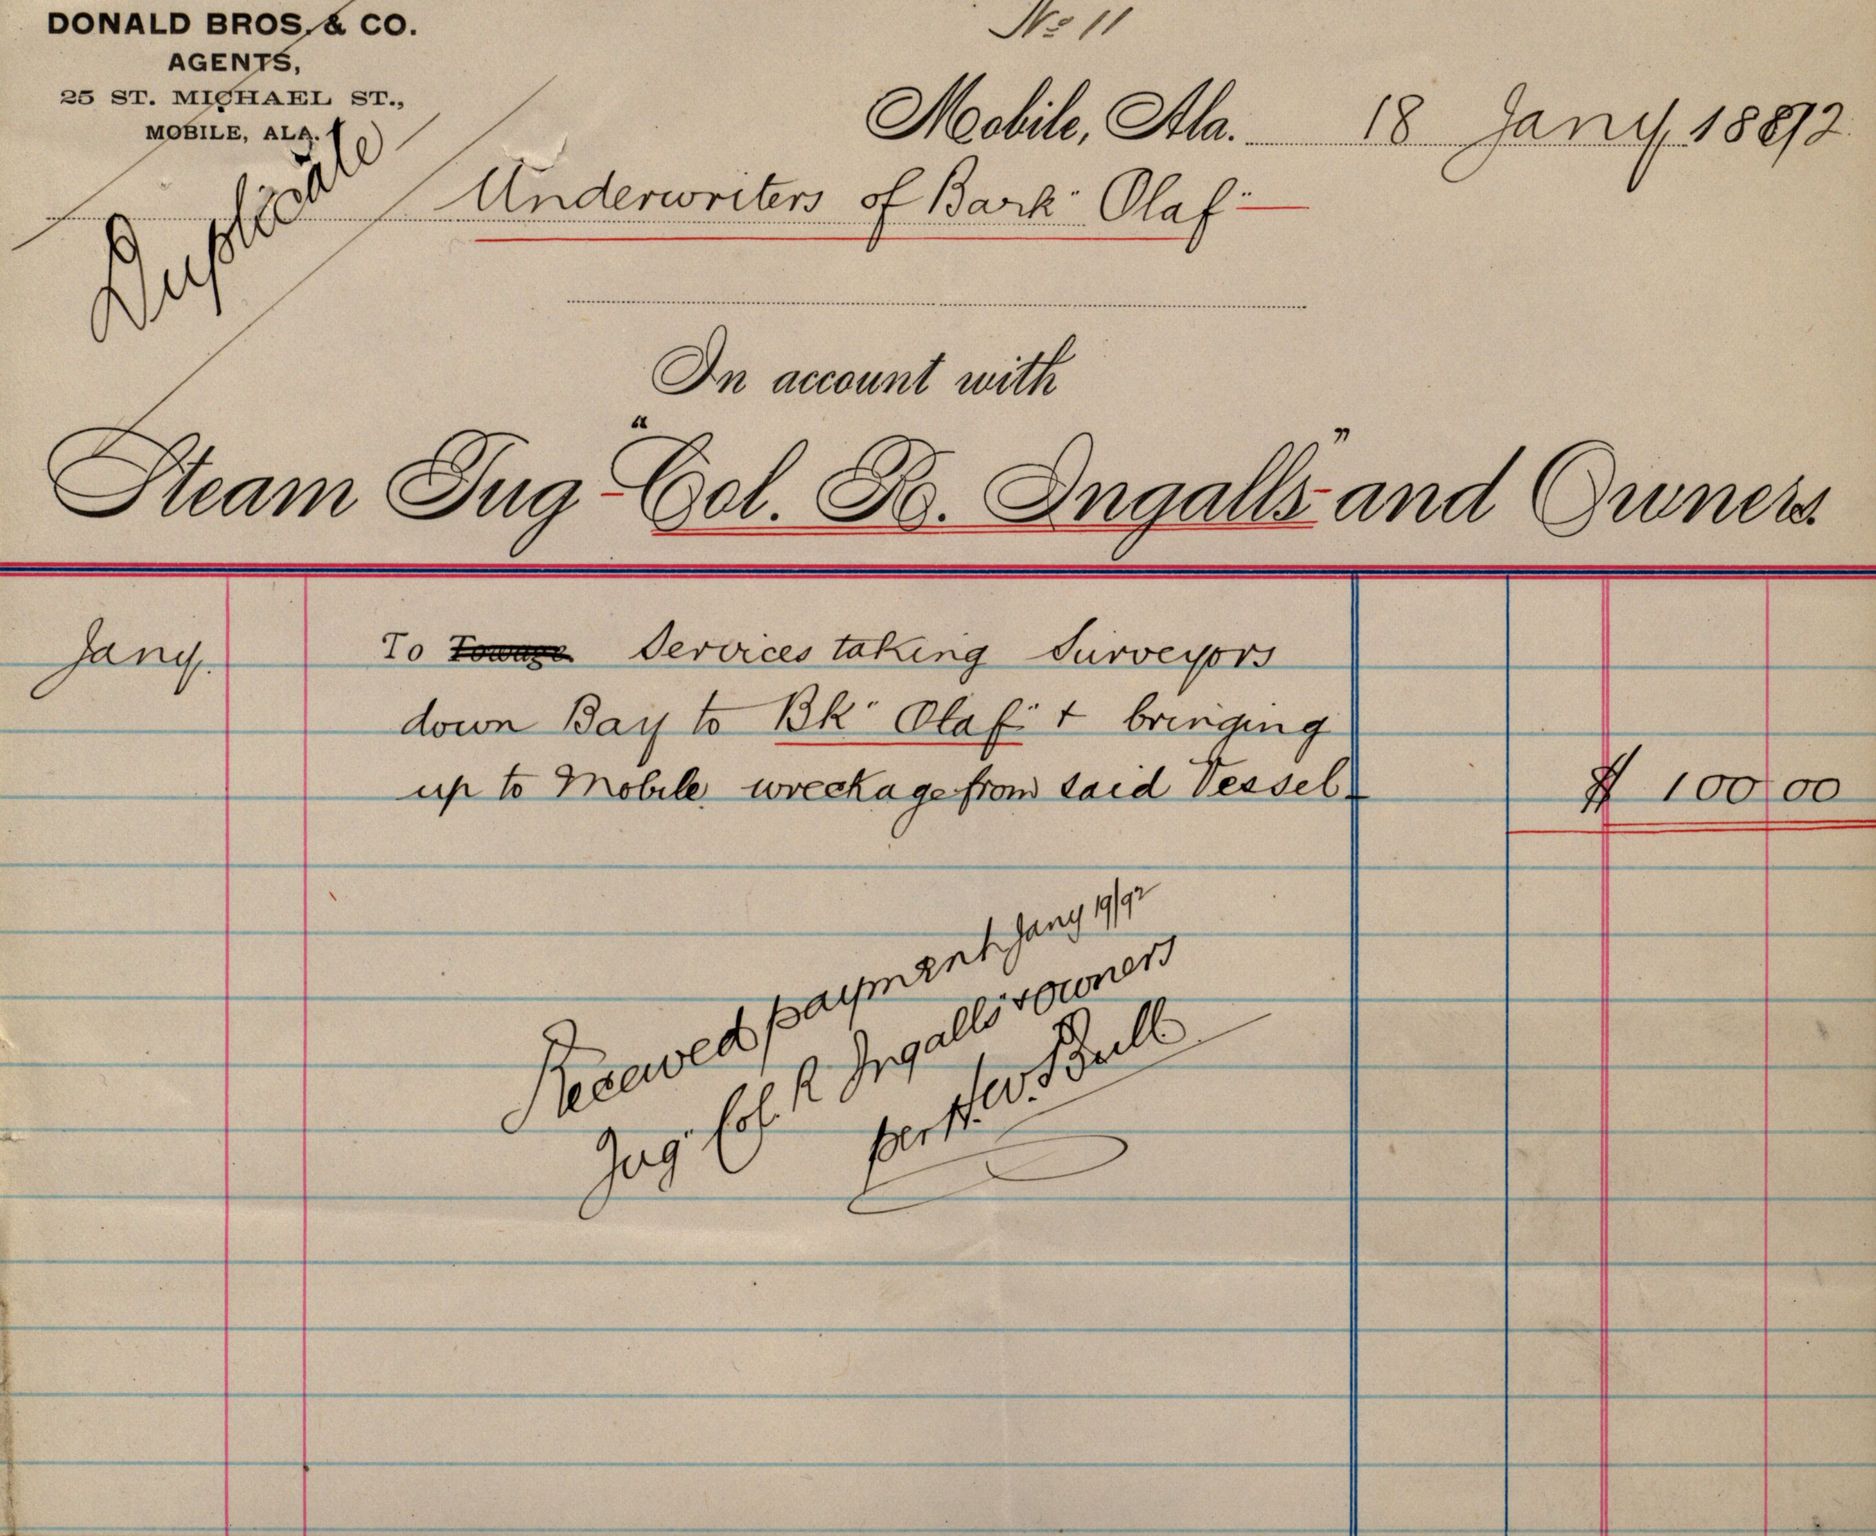 DONALD BROS. & CO.
AGENTS,
25 ST. MICHAEL ST.,
MOBILE, ALA.
Duplicate
No 11
Mobile, Ala. 18 Jany 1892
Underwriters of Bark "Olaf"
In account with
Steam Tug "Col. R. Ingalls" and Owners.
Jany. To Towage Services taking Surveyors
down Bay to Bk "Olaf" & bringing
up to Mobile wreckage from said Vessel $ 100 00
Received payment Jany 19/92
Tug "Col. R Ingalls" & owners
per H. W. Bull